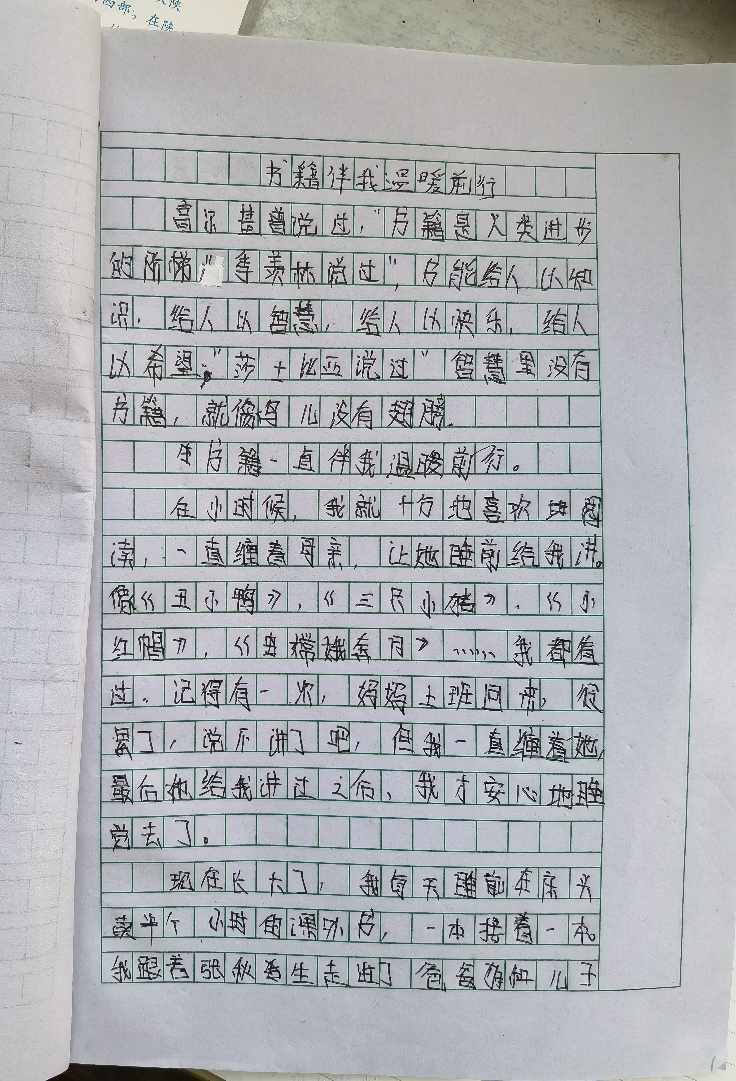 陕
西部，在陕
书籍伴我温暖前行
高尔基曾说过，“书籍是人类进步
的阶梯”季羡林说过“，书能给人以知
识，给人以智慧，给人以快乐，给人
以希望；”莎士比亚说过“智慧里没有
书籍，就像鸟儿没有翅膀.
书籍一直伴我温暖前行。
在小时候，我就十分地喜欢
读，一直缠着母亲，让她睡前给我讲。
像《丑小鸭》，《三只小猪》，《小
红帽》，《嫦娥奔月》……我都看
过.记得有一次，妈妈上班回来，很
累了，说不讲了吧，但我一直缠着她，
最后她给我讲过之后，我才安心地睡
觉去了。
现在长大了，我每天睡前在床头
读半个小时的课外书，一本接着一本。
我跟着张秋生走进了爸爸有仙儿子